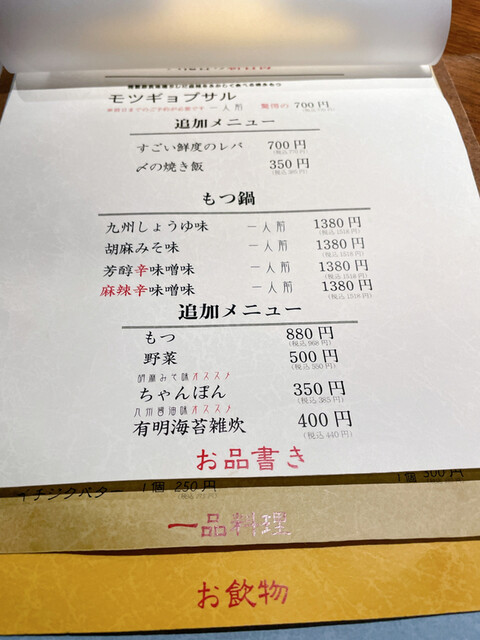 モツギョプサル 一人前 驚愕の 700円
追加メニュー
すごい鮮度のレバ 700円
(税込770円)
〆の焼き飯 350円
(税込385円)
もつ鍋
九州しょうゆ味 一人前 1380円
(税込1518円)
胡麻みそ味 一人前 1380円
(税込1518円)
芳醇辛味噌味 一人前 1380円
(税込1518円)
麻辣辛味噌味 一人前 1380円
(税込1518円)
追加メニュー
もつ 880円
(税込968円)
野菜 500円
(税込550円)
胡麻みそ味オススメ
ちゃんぽん 350円
(税込385円)
九州醤油味オススメ
有明海苔雑炊 400円
(税込440円)
お品書き
300円
バター 1個 250円
一品料理
お飲物